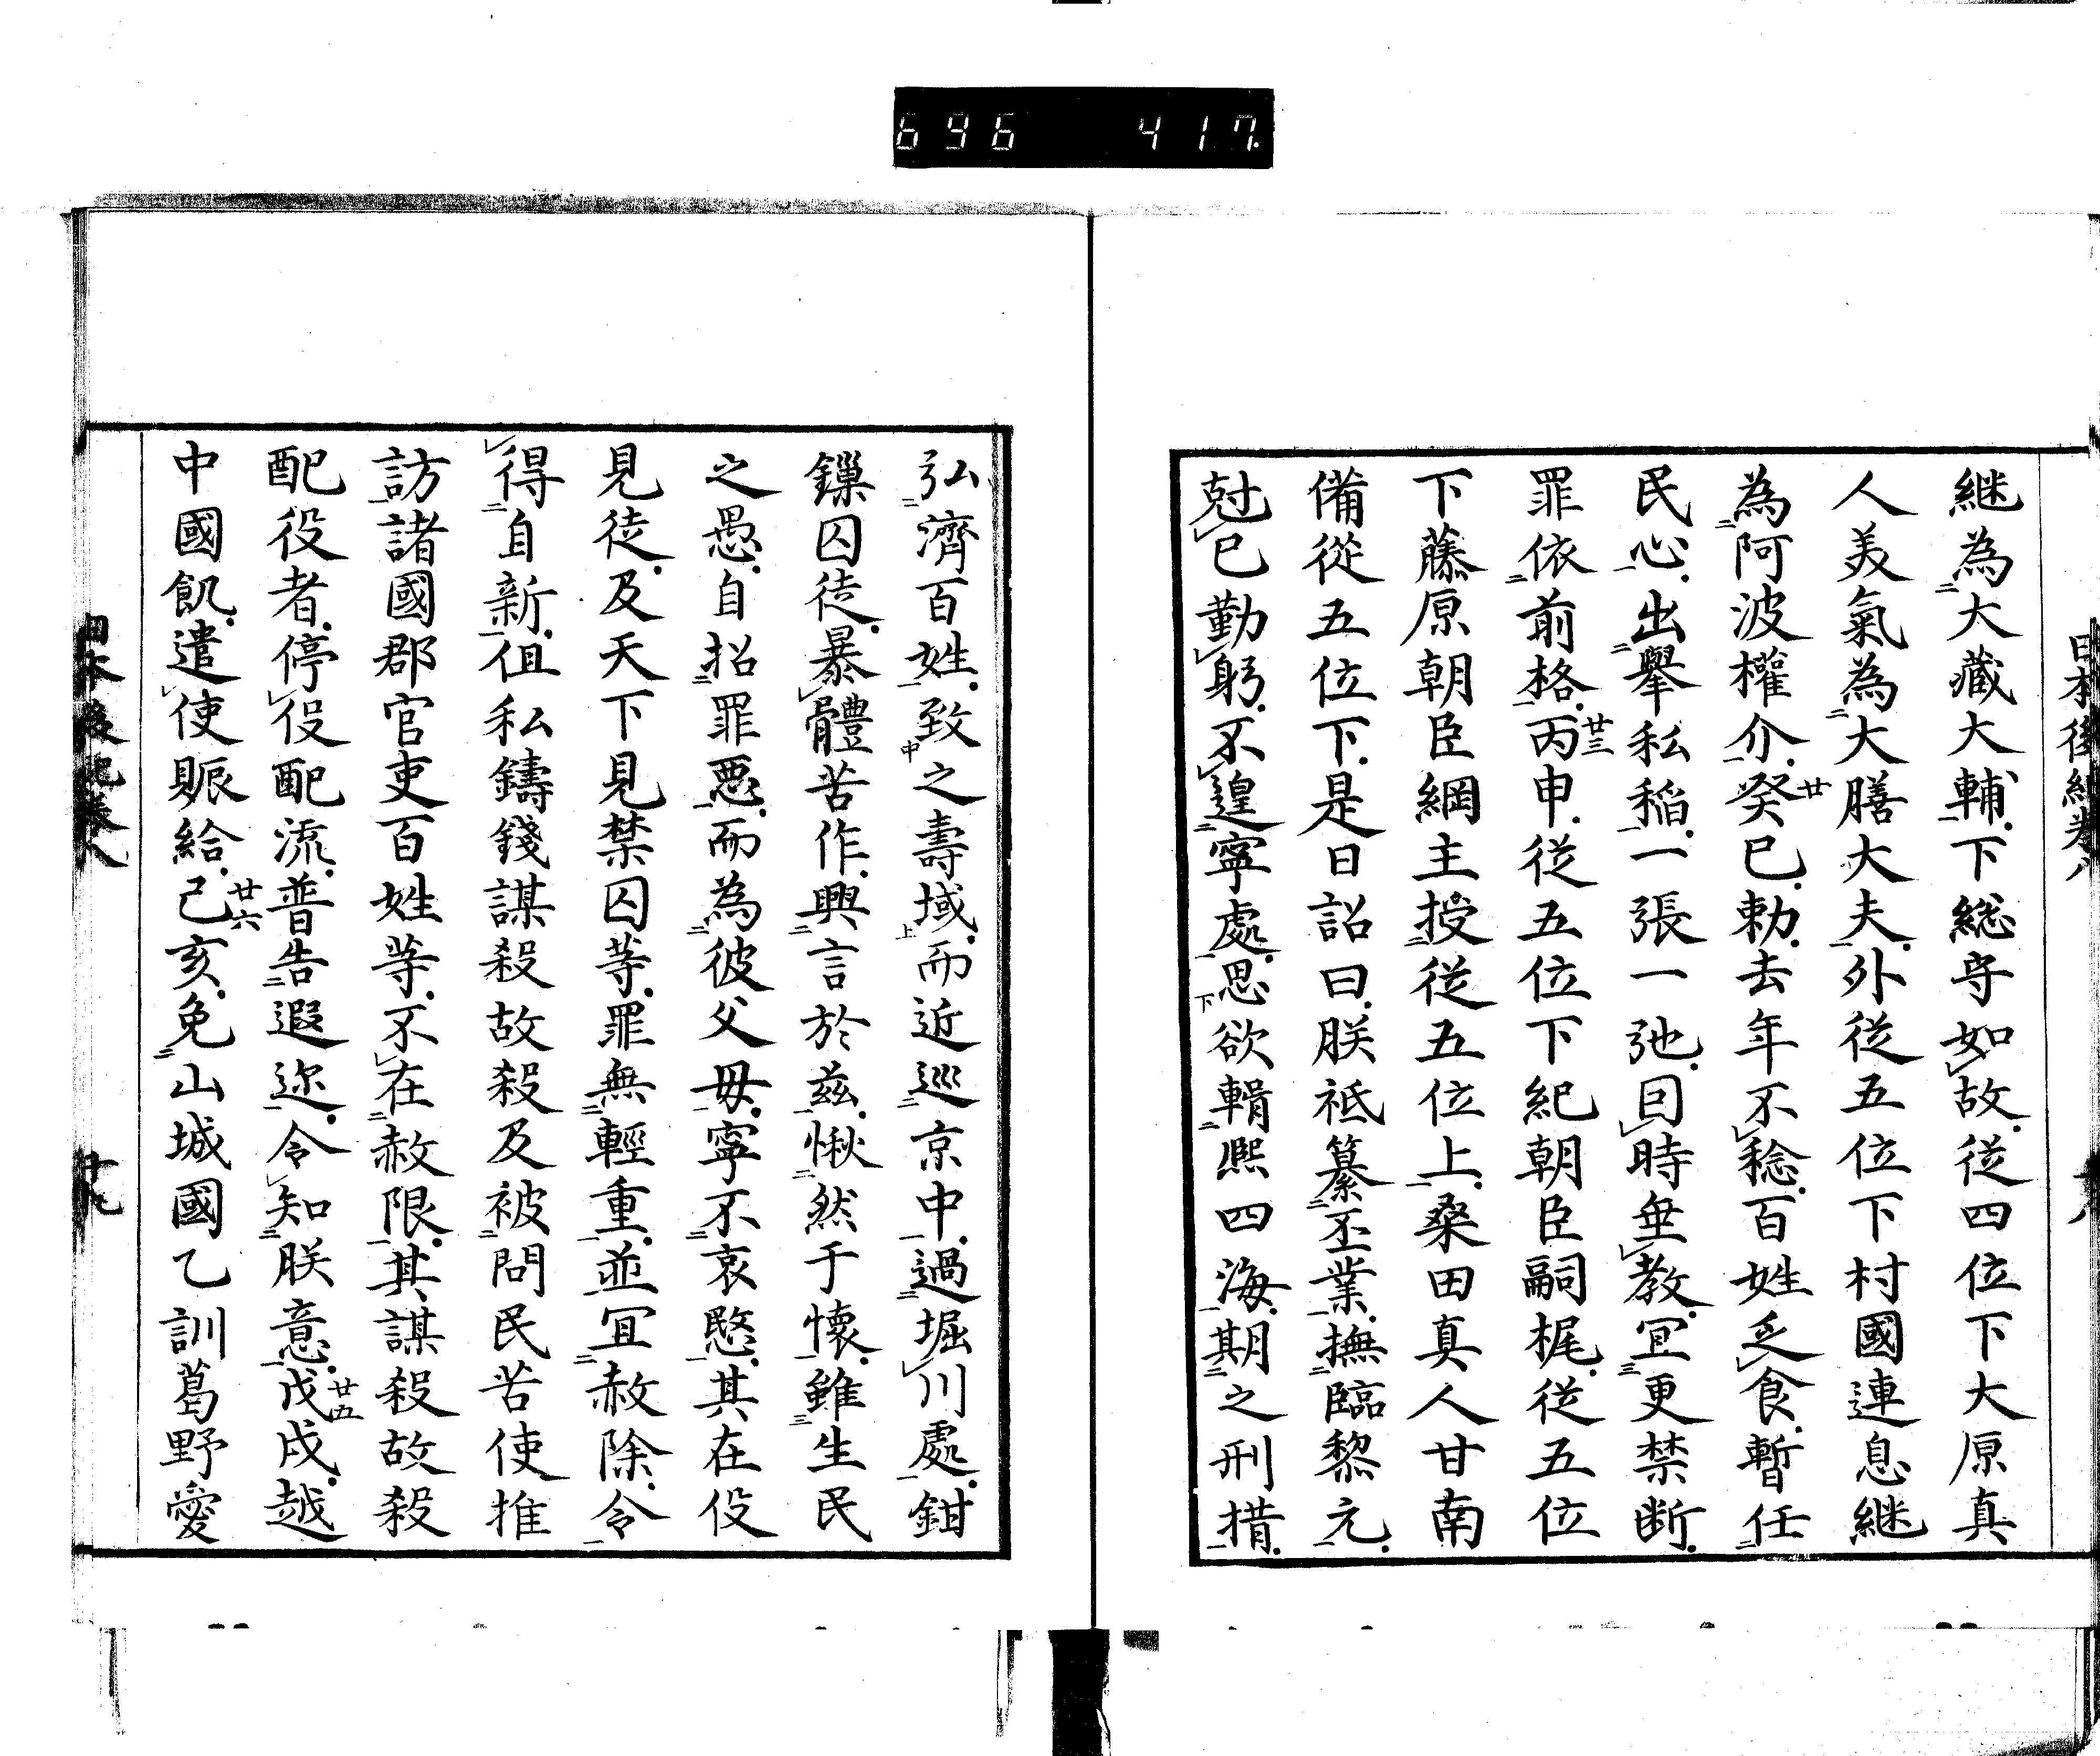 696 417
継為大藏大輔下総守如故従四位下大原真
人美氣為大膳大夫外従五位下村國連息継
為阿波權介癸巳勅去年不稔百姓乏食暫任
廿
民心出舉私稲一張一弛囙時垂教冝更禁断
罪依前格丙申従五位下紀朝臣嗣梶従五位
廿三
下藤原朝臣綱主授従五位上桑田真人甘南
備從五位下是日詔曰朕祗纂丕業撫臨黎元
尅已勤躬不遑寧處思欲輯熈四海期之刑措
弘濟百姓致之壽域而近巡京中過堀川處鉗
鏁囚徒暴體苦作興言於茲愀然于懐雖生民
之愚自招罪悪而為彼父母寧不哀愍其在役
見徒及天下見禁囚等罪無輕重並冝赦除令
得自新伹私鑄錢謀殺故殺及被問民苦使推
訪諸國郡官吏百姓等不在赦限其謀殺故殺
配役者停役配流普告遐迩令知朕意戊戌越
廿五
中國飢遣使賑給己亥免山城國乙訓葛野愛
廿六
日本後紀巻八